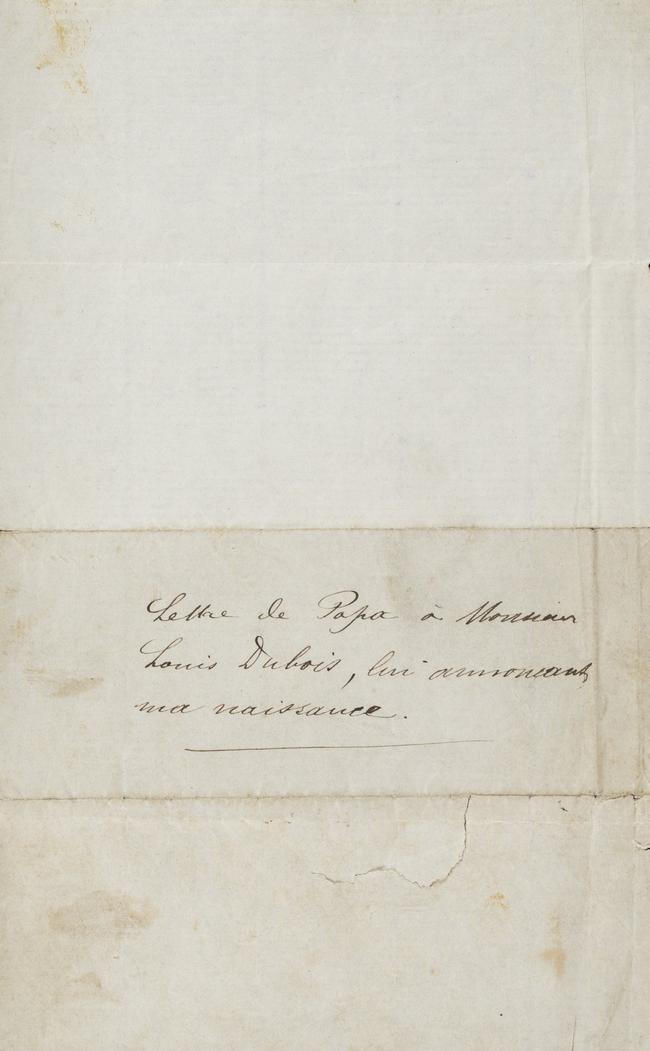 Lettre de Papa à Monsieur
Louis Dubois, lui annoncant
ma naissance.